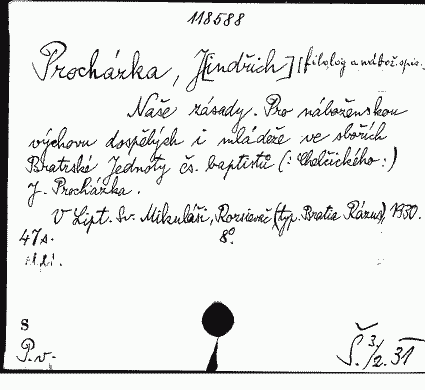 118588
Procházka, J[indřich] [filolog a nábož. spis.
Naše zásady. Pro náboženskou
výchovu dospělých i mládeže ve sborích
Bratrské Jednoty čs. baptistů (: Chelčického :)
J. Procházka.
V Lipt. Sv. Mikuláši, Rozsievač (typ. Bratia Rázus), 1930.
47 s. 8°.
S
P.v. Š. 3/2. 31